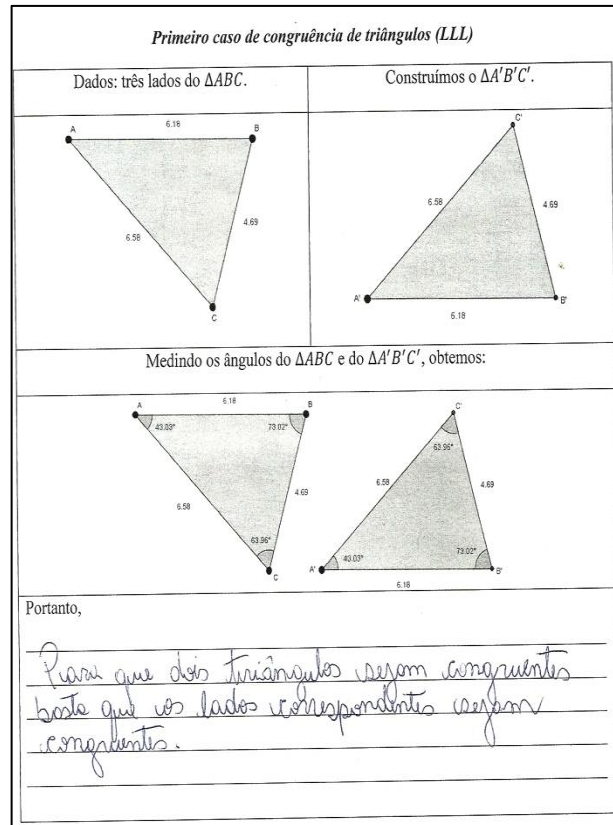 Primeiro caso de congruência de triângulos (LLL)
Dados: três lados do ΔABC.
Construímos o ΔA'B'C'.
A
6.18
B
6.58
4.69
C
C'
6.58
4.69
A'
B'
6.18
Medindo os ângulos do ΔABC e do ΔA'B'C', obtemos:
A
6.18
B
43.03°
73.02°
6.58
4.69
63.96°
C
C'
63.96°
6.58
4.69
43.03°
73.02°
A'
B'
6.18
Portanto,
Para que dois triângulos sejam congruentes
basta que os lados correspondentes sejam
congruentes.